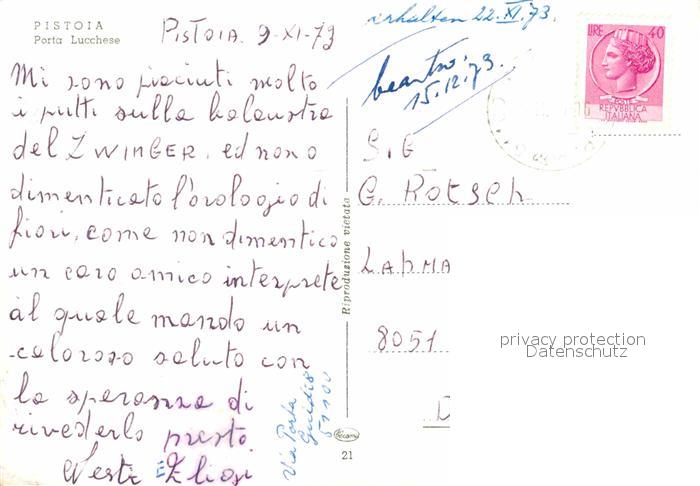 PISTOIA
Porta Lucchese
PISTOIA. 9-XI-73
Mi sono piaciuti molto
i putti sulla balaustra
del ZWINGER, ed non o
dimenticato l'orologio di
fiori, come non dimentico
un caro amico interprete
al quale mando un
caloroso saluto con
la speranza di
rivederlo presto.
Riproduzione vietata
21
Via Porta
51100
erhalten 22.XI.73.
beantw. 15.12.73.
LIRE 40
POSTE
REPVBBLICA
ITALIANA
S.G
G. Rötsch
8051
privacy protection
Datenschutz